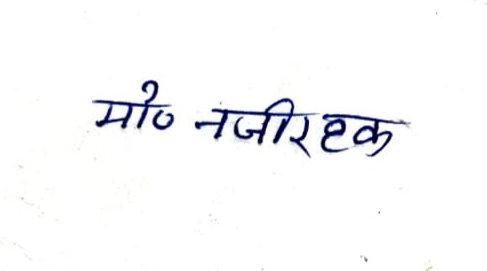 मो० नजीर हक